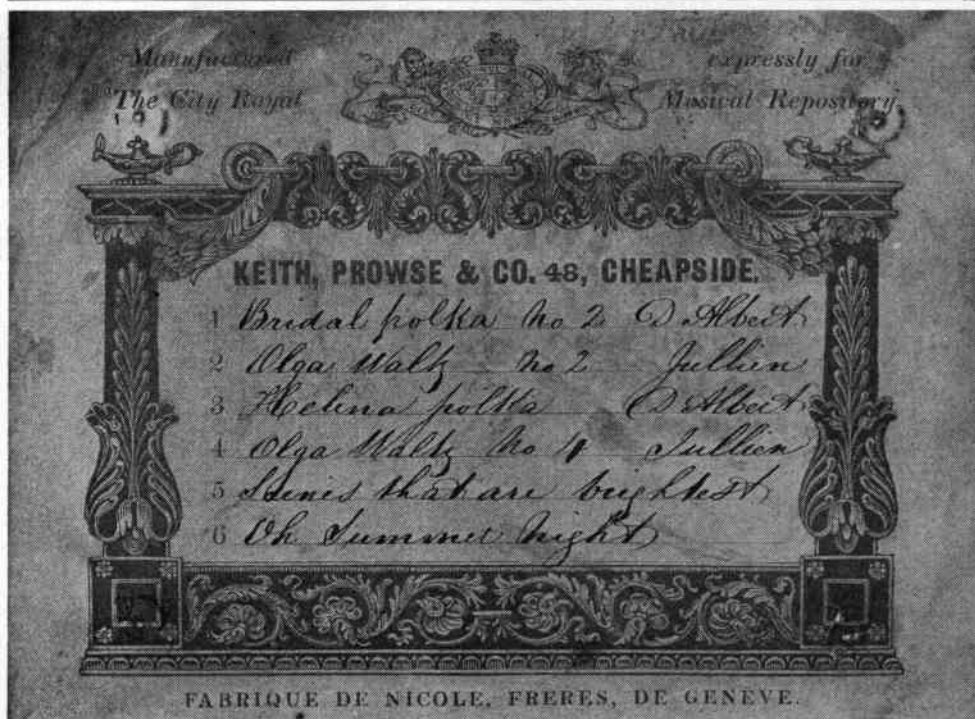 Manufactured expressly for
The City Royal Musical Repository
KEITH, PROWSE & CO. 48, CHEAPSIDE.
1 Bridal polka No 2 D Albert
2 Olga Waltz no 2 Jullien
3 Helina polka D Albert
4 Olga Waltz No 4 Jullien
5 Scenes that are brightest
6 Oh Summer Night
FABRIQUE DE NICOLE, FRERES, DE GENÈVE.